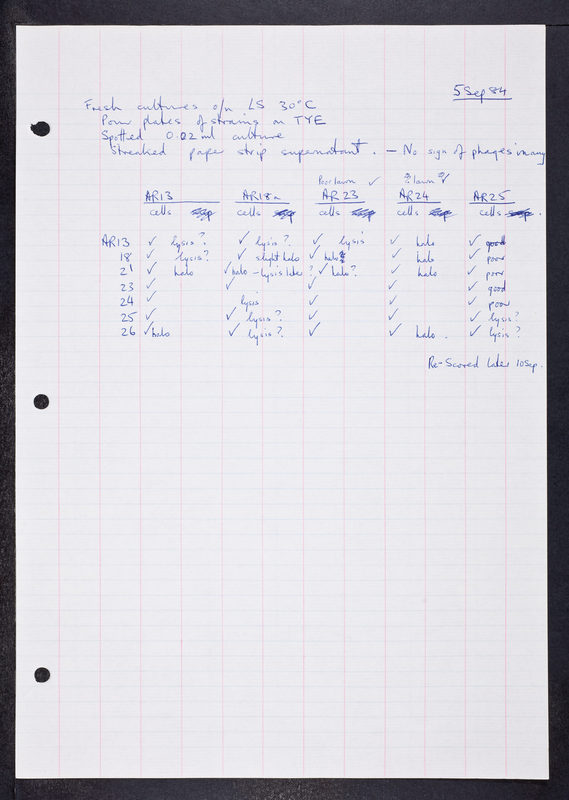 5 Sep 84
Fresh cultures o/n LS 30°C
Pour plates of strains on TYE
Spotted 0.02 ml culture
Streaked paper strip supernatant. – No sign of phages in any
Poor lawn ✓ lawn
AR13 AR18a AR23 AR24 AR25
cells cells cells cells cells
AR13 ✓ lysis? ✓ lysis? ✓ lysis ✓ halo ✓ good
18 ✓ lysis? ✓ slight halo ✓ halo ✓ halo ✓ poor
21 ✓ halo ✓ halo – lysis later? ✓ halo? ✓ halo ✓ poor
23 ✓ ✓ ✓ ✓ ✓ good
24 ✓ lysis ✓ ✓ ✓ poor
25 ✓ ✓ lysis? ✓ ✓ ✓ lysis?
26 ✓ halo ✓ lysis? ✓ ✓ halo. ✓ lysis?
Re-Scored later 10 Sep.